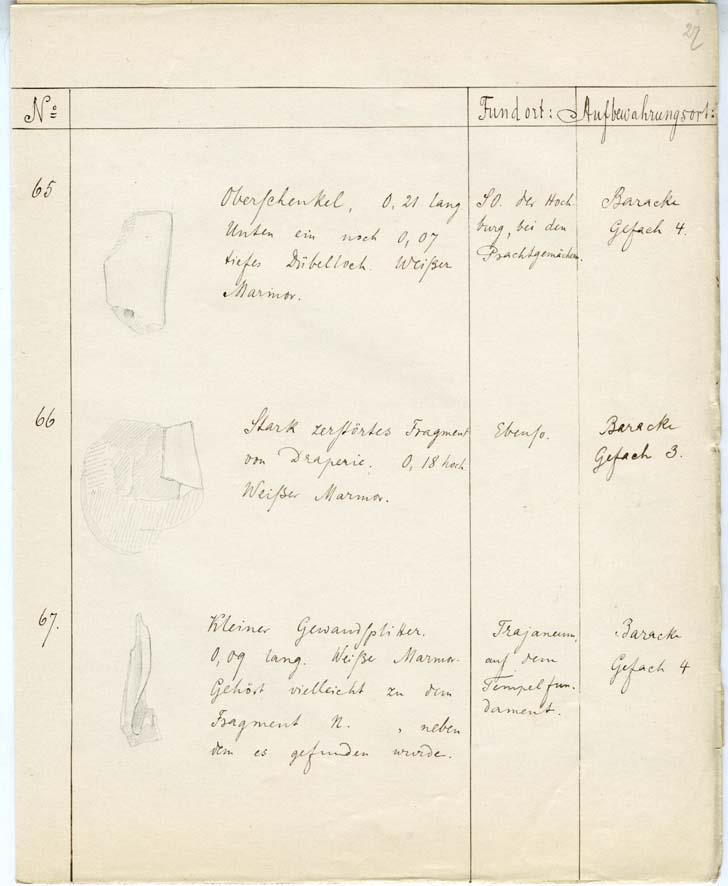 27
No
Fundort:
Aufbewahrungsort:
65
Oberschenkel, 0,21 lang
Unten ein noch 0,07
tiefes Dübelloch. Weißer
Marmor.
SO. der Hoch
burg, bei den
Prachtgemächern.
Baracke
Gefach 4.
66
Stark zerstörtes Fragment
von Draperie. 0,18 hoch
Weißer Marmor.
Ebenso.
Baracke
Gefach 3.
67.
Kleiner Gewandsplitter.
0,09 lang. Weißer Marmor.
Gehört vielleicht zu dem
Fragment N. , neben
dem es gefunden wurde.
Trajaneum,
auf dem
Tempelfun-
dament.
Baracke
Gefach 4